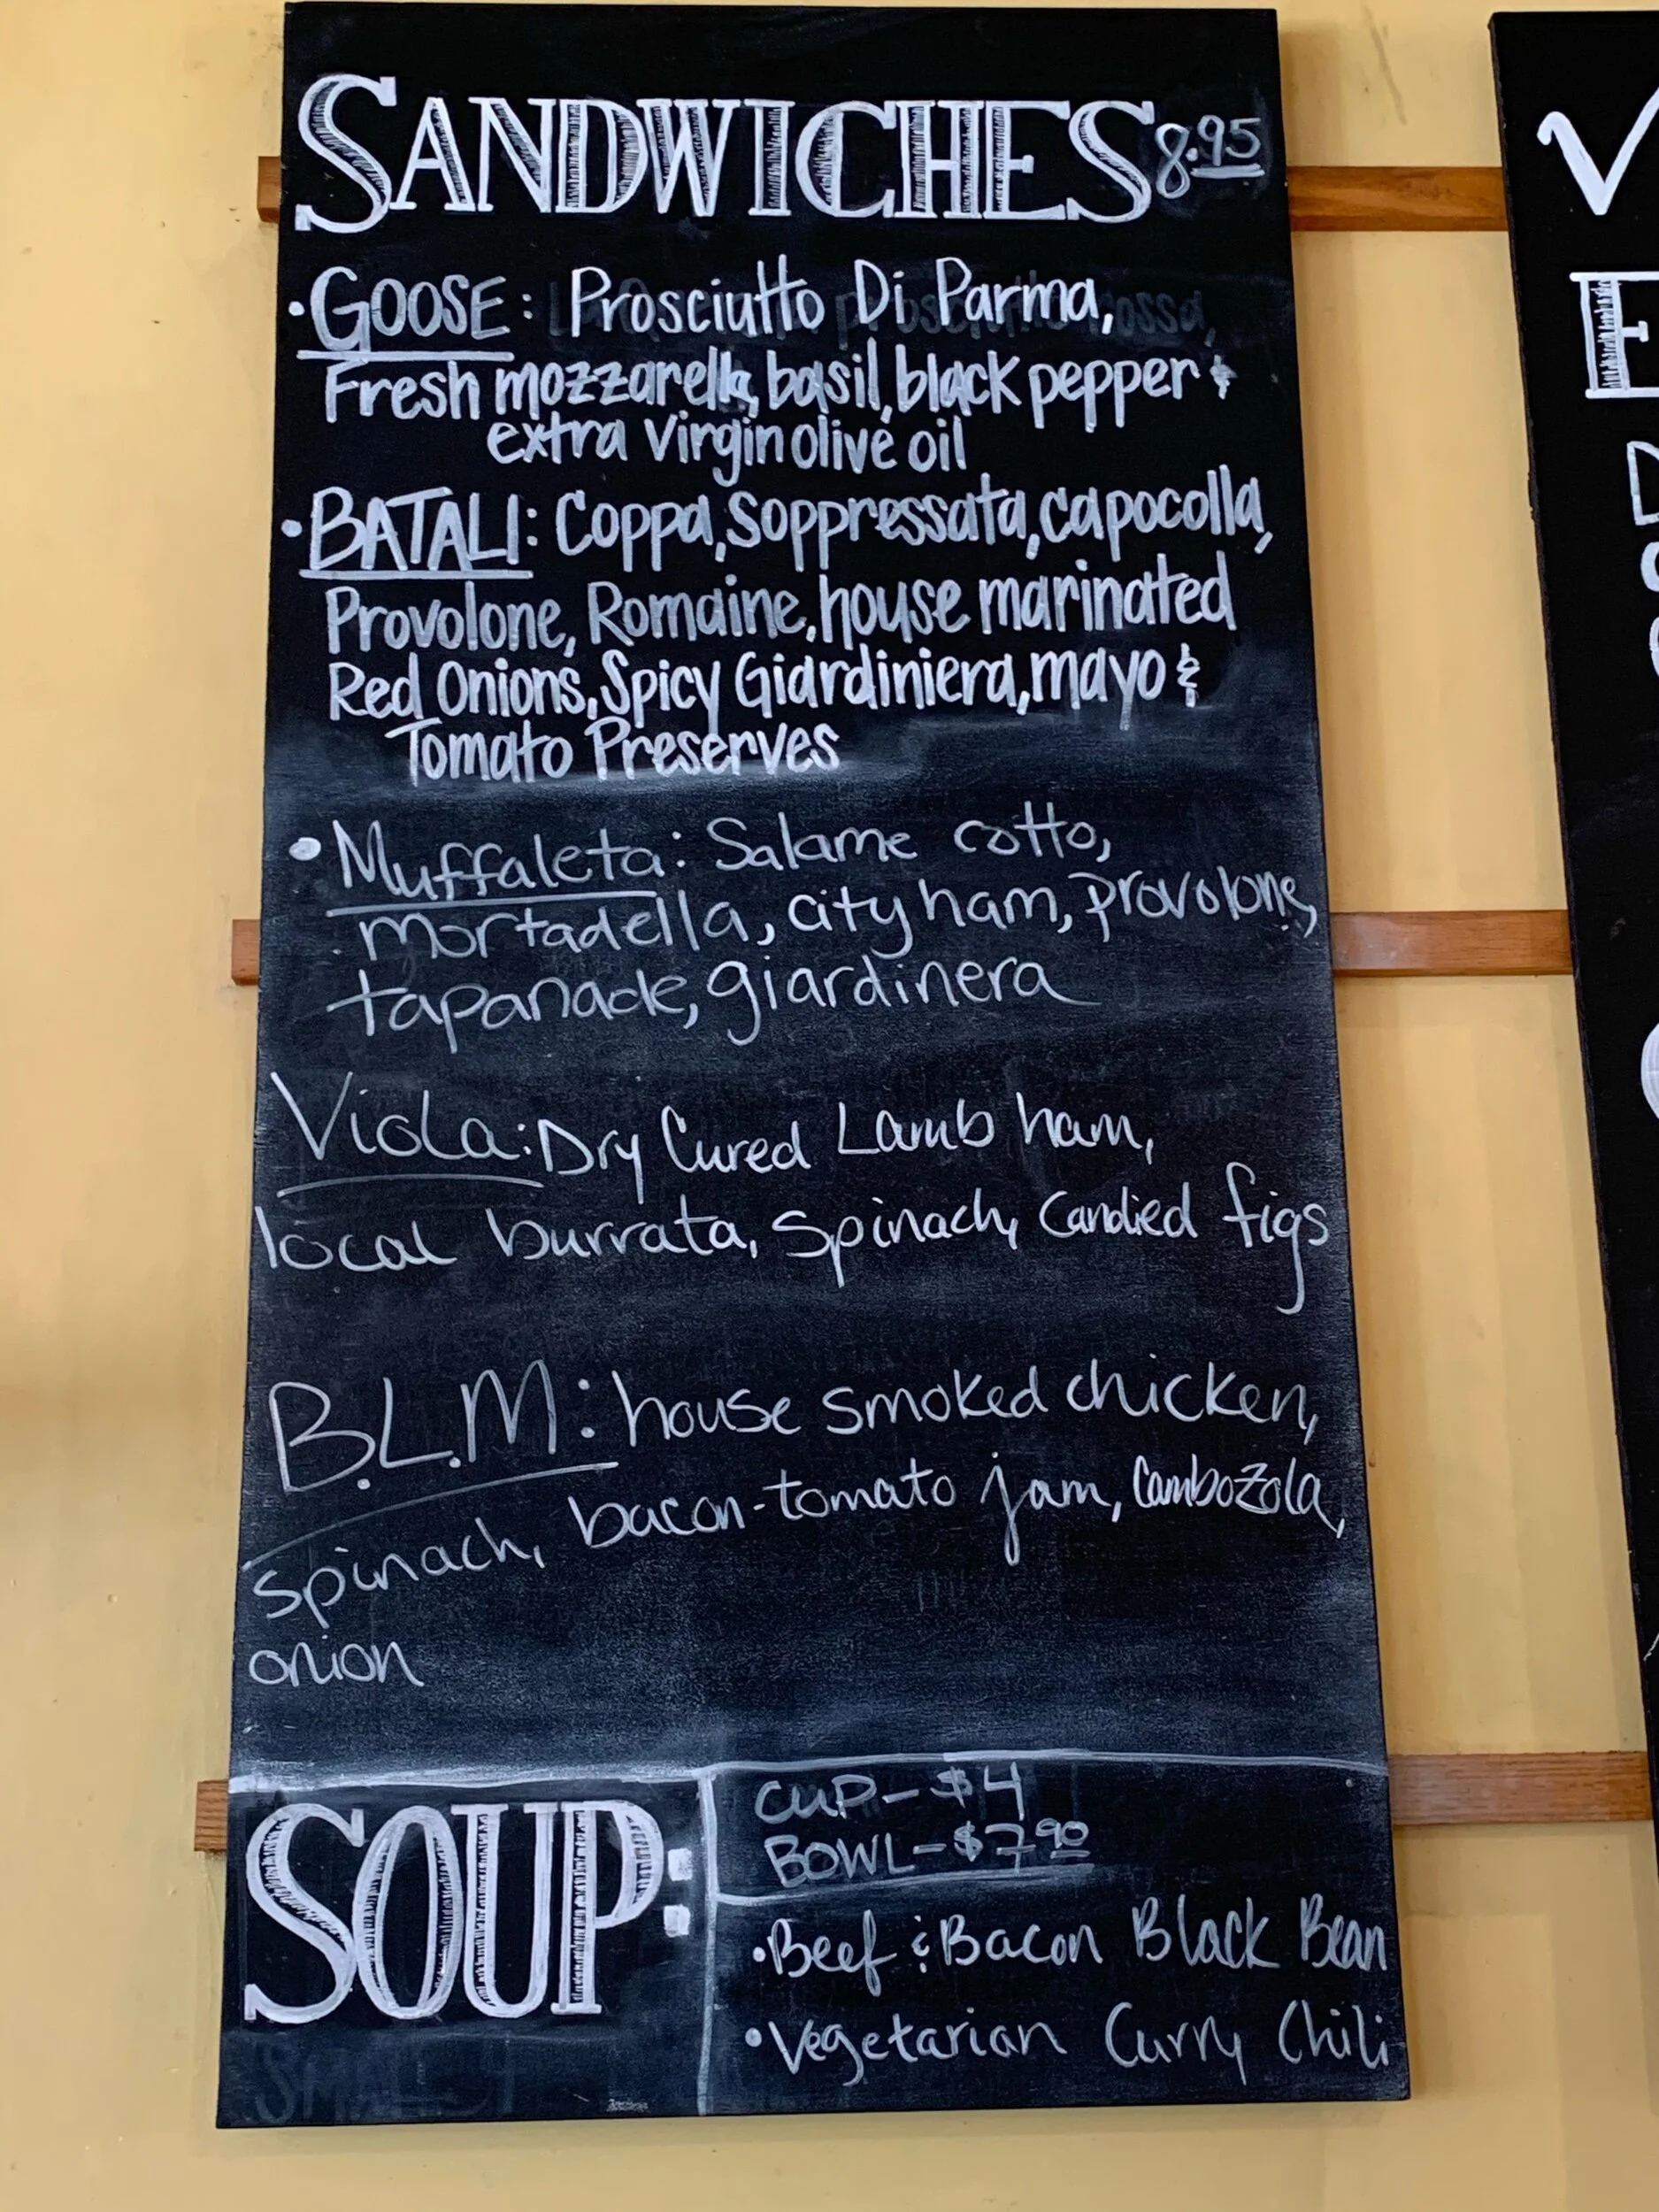 SANDWICHES 8.95
• GOOSE: Prosciutto Di Parma,
Fresh mozzarella, basil, black pepper &
extra Virgin olive oil
• BATALI: Coppa, Soppressata, capocolla,
Provolone, Romaine, house marinated
Red Onions, Spicy Giardiniera, mayo &
Tomato Preserves
• Muffaleta: Salame cotto,
mortadella, city ham, provolone,
tapanade, giardinera
Viola: Dry Cured Lamb ham,
local burrata, spinach, candied figs
B.L.M: house smoked chicken,
spinach, bacon-tomato jam, Cambozola,
onion
SOUP:
CUP - $4
BOWL - $7.90
• Beef & Bacon Black Bean
• Vegetarian Curry Chili